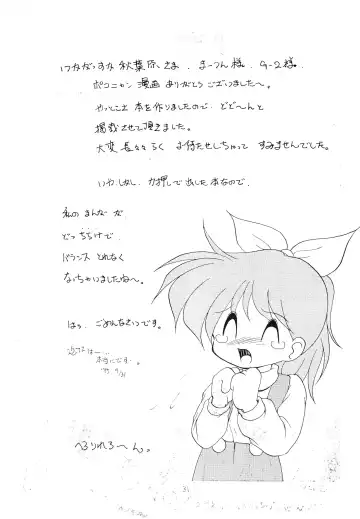 秋葉原さま、まーつん様、9-2様。
ポコニャン漫画ありがとうございました〜。
やっとこさ本を作りましたので、どど〜んと
掲載させて頂きました。
大変長々 お待たせしちゃって すみませんでした。
いや、しかし 力押しで出した本なので、
私のまんなが
どっちらけで
バランス とれなく
なっちゃいましたね〜。
はっ、ごめんなさいです。
へろりれろ〜ん。